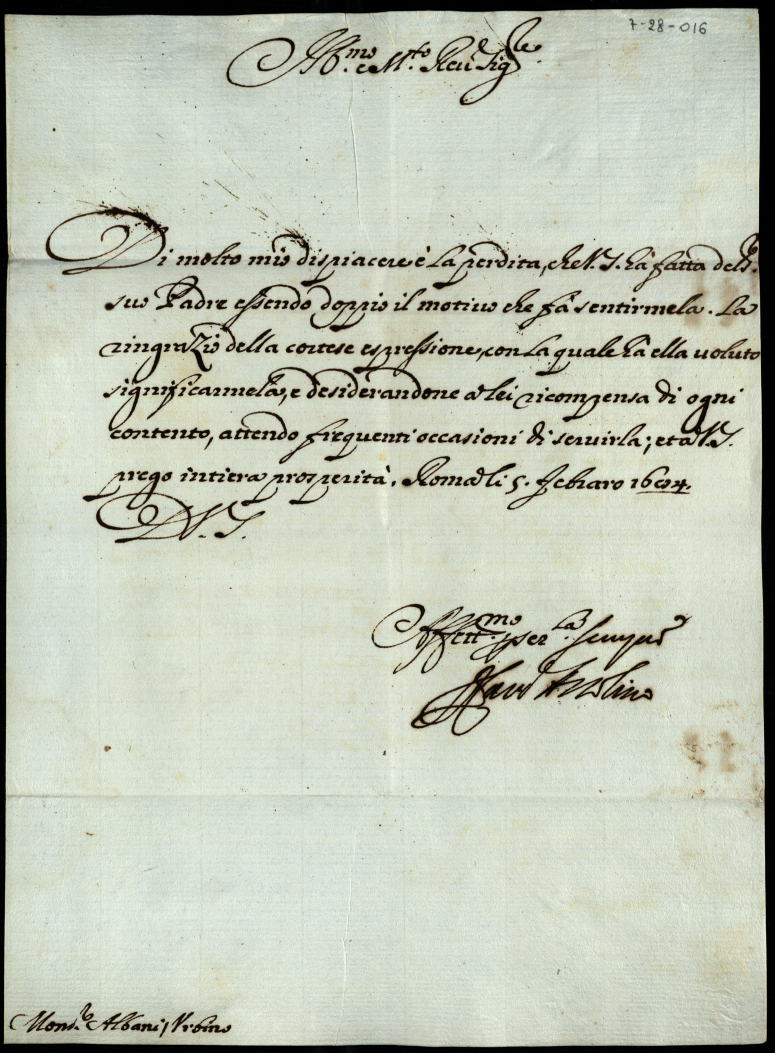 7-28-016
Ill.mo e M.to Rev.do Sig.re
Di molto mio dispiacere è la perdita, che V.S. hà fatta del S.r
suo Padre essendo doppio il motivo che fà sentirmela. La
ringrazio della cortese espressione, con la quale hà ella voluto
significarmela, e desiderandone à lei ricompensa di ogni
contento, attendo frequenti occasioni di servirla; et à V.S.
prego intiera prosperità. Roma li 5. Febraro
D V.S.
Affett.mo per sempre
Azzolino
Mons.r Albani / Urbino